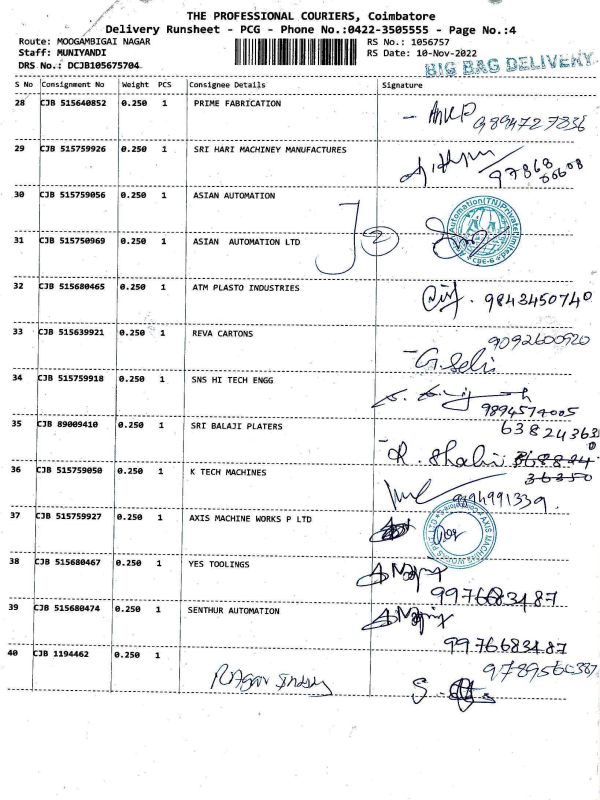 THE PROFESSIONAL COURIERS, Coimbatore
Delivery Runsheet - PCG - Phone No.:0422-3505555 - Page No.:4
Route: MOOGAMBIGAI NAGAR RS No.: 1056757
Staff: MUNIYANDI RS Date: 10-Nov-2022
DRS No.: DCJB105675704 BIG BAG DELIVERY
S No Consignment No Weight PCS Consignee Details Signature
28 CJB 515640852 0.250 1 PRIME FABRICATION
29 CJB 515759926 0.250 1 SRI HARI MACHINEY MANUFACTURES
97868
30 CJB 515759056 0.250 1 ASIAN AUTOMATION
31 CJB 515750969 0.250 1 ASIAN AUTOMATION LTD 2
32 CJB 515680465 0.250 1 ATM PLASTO INDUSTRIES
9843450740
33 CJB 515639921 0.250 1 REVA CARTONS 9092600920
34 CJB 515759918 0.250 1 SNS HI TECH ENGG
35 CJB 89009410 0.250 1 SRI BALAJI PLATERS
36 CJB 515759050 0.250 1 K TECH MACHINES
37 CJB 515759927 0.250 1 AXIS MACHINE WORKS P LTD
38 CJB 515680467 0.250 1 YES TOOLINGS
9976683487
39 CJB 515680474 0.250 1 SENTHUR AUTOMATION
9976683487
40 CJB 1194462 0.250 1